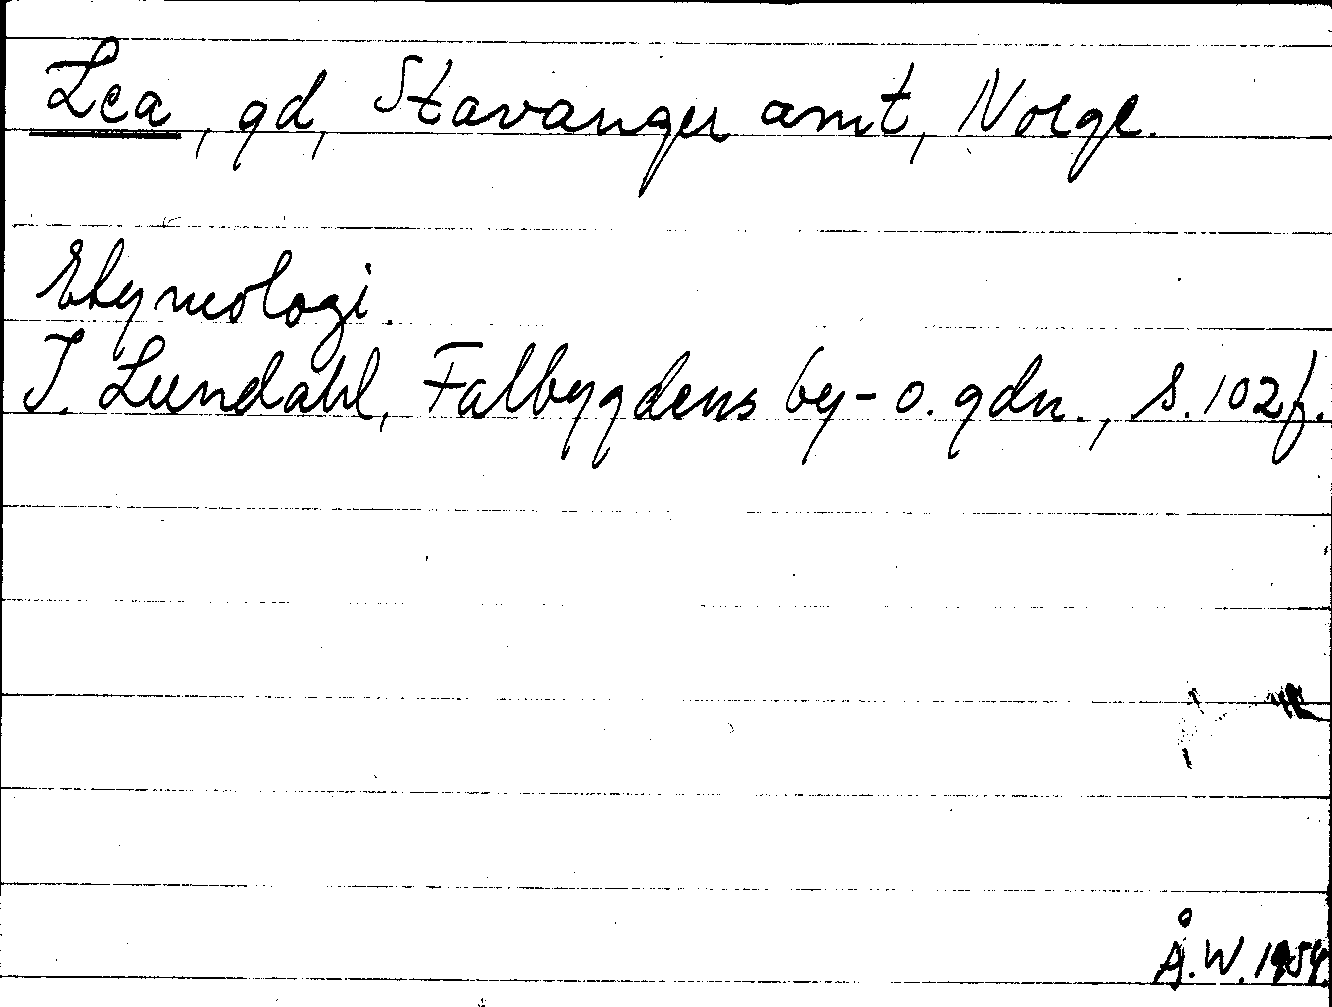 Lea, gd, Stavanger amt, Norge.
Etymologi.
I. Lundahl, Falbygdens by- o. gdn., s. 102 f.
Å.W. 1954.